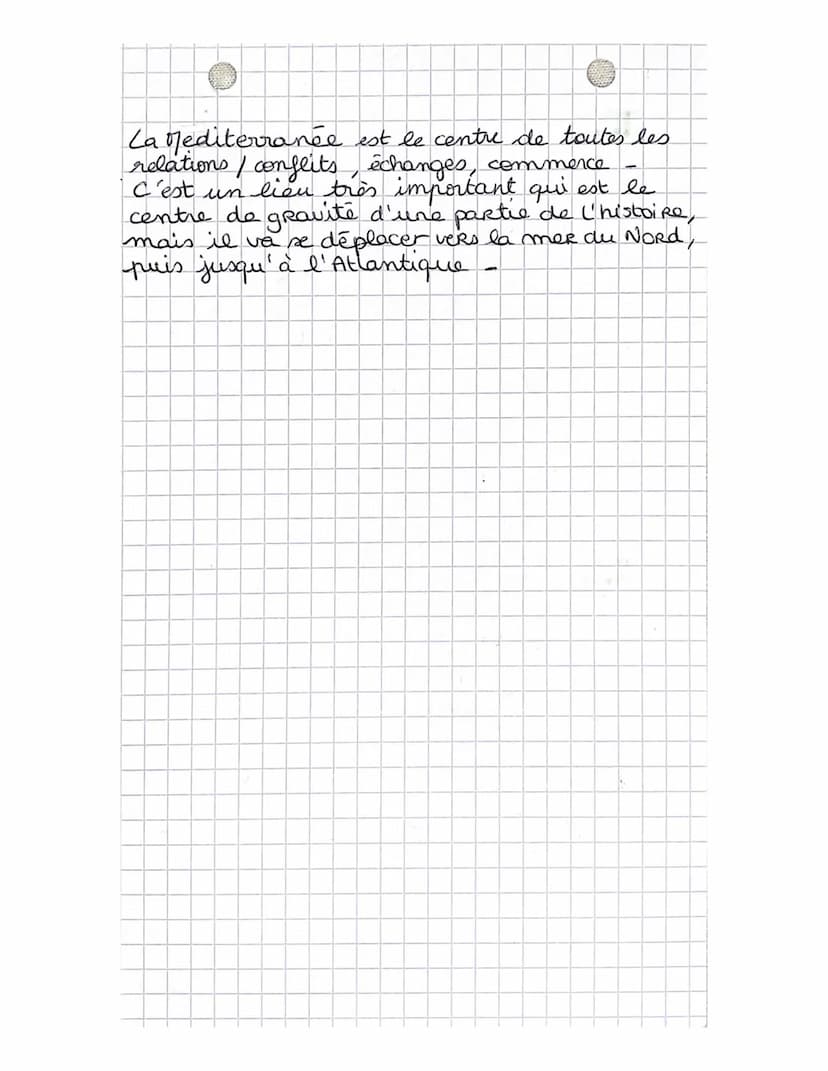 La Mediterranée est le centre de toutes les
relations / conflits, échanges, commerce -
C'est un lieu très important qui est le
centre de gravité d'une partie de l'histoire,
mais il va se déplacer vers la mer du Nord,
puis jusqu'à l'Atlantique -